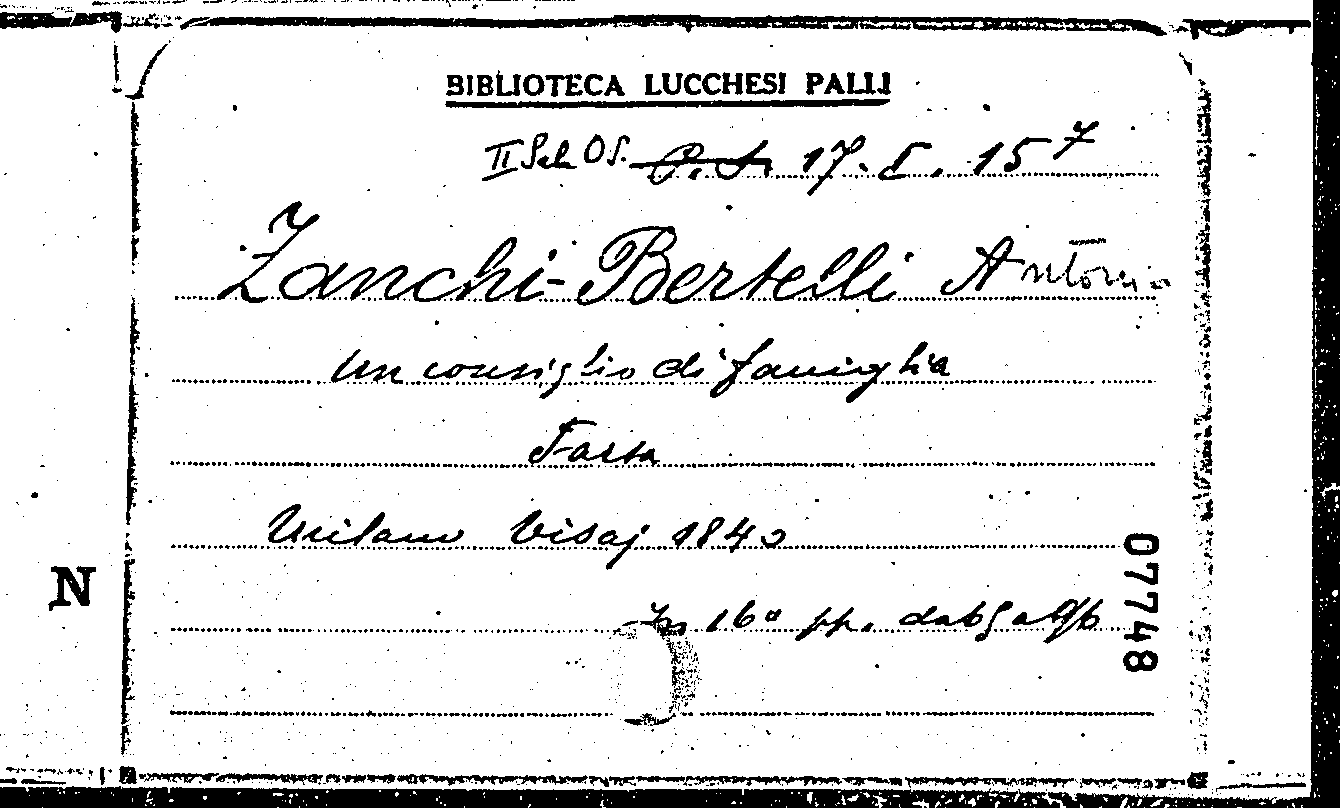 BIBLIOTECA LUCCHESI PALLI
II Sch OS. 17. I. 15 7
Zanchi-Bertelli Antonio
Un consiglio di famiglia
Farsa
Milano Visaj 1840
In 16° pp. da 65 a
07748
N